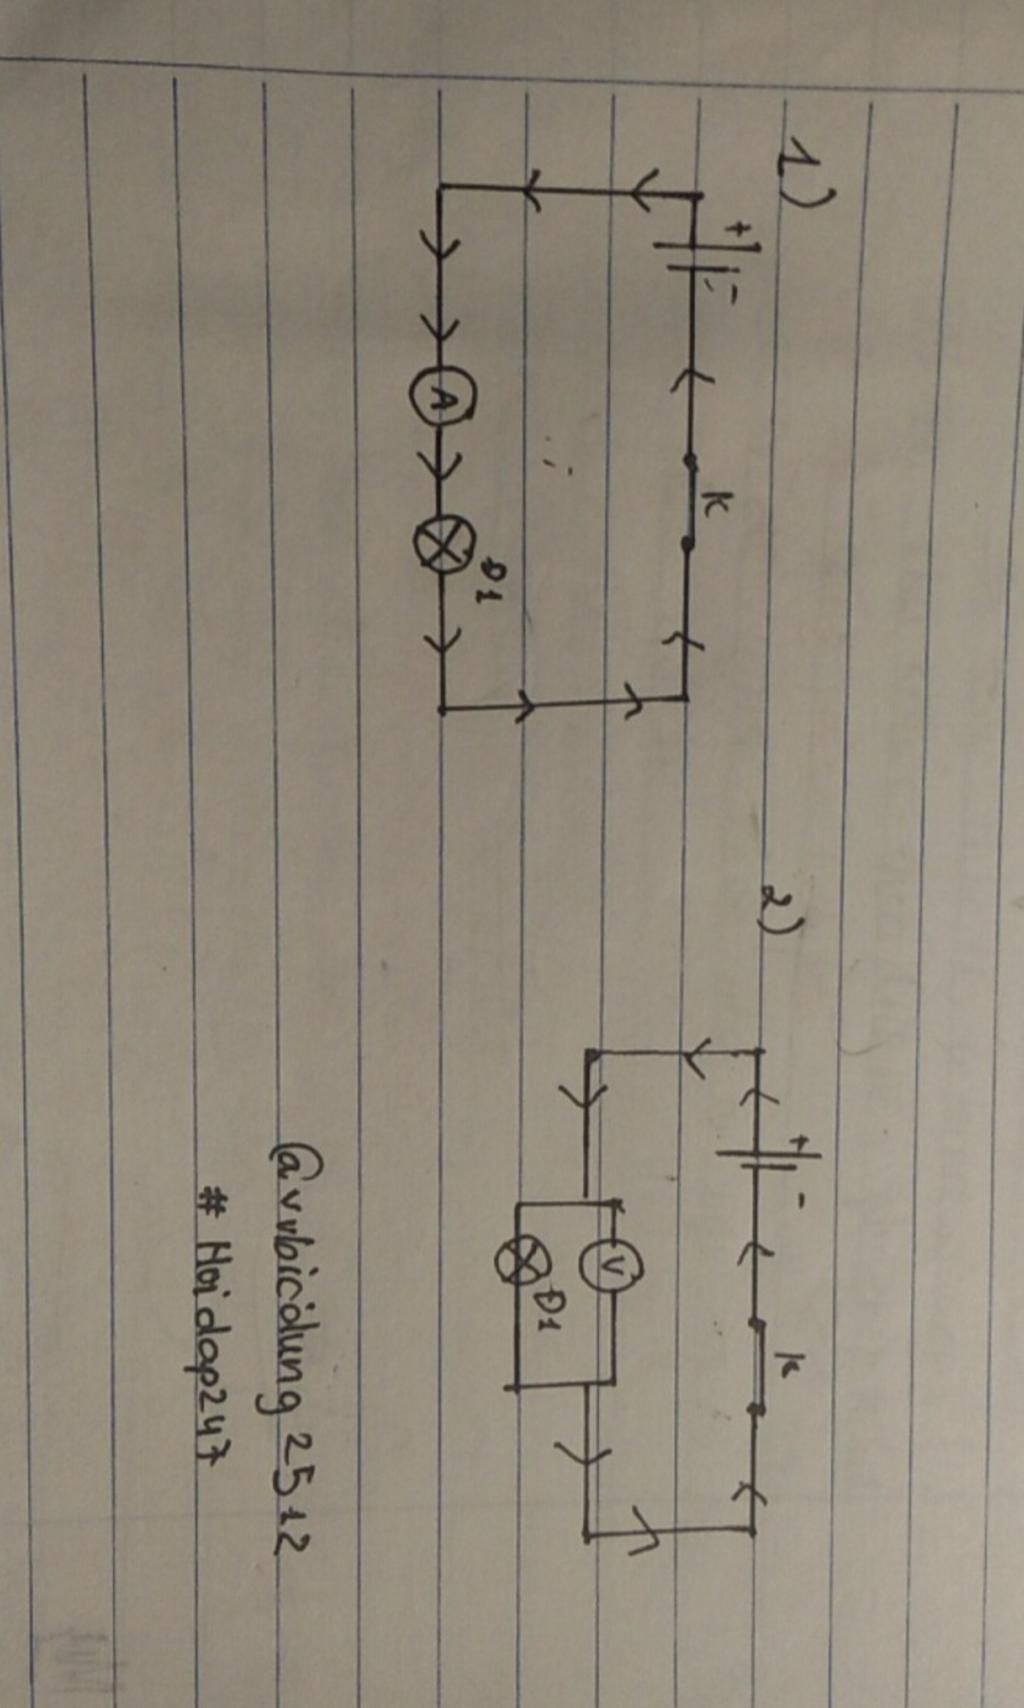 1)
+ -
K
A
Đ1
2)
+ -
K
V
Đ1
@vvbicdung2512
# Hoidap247